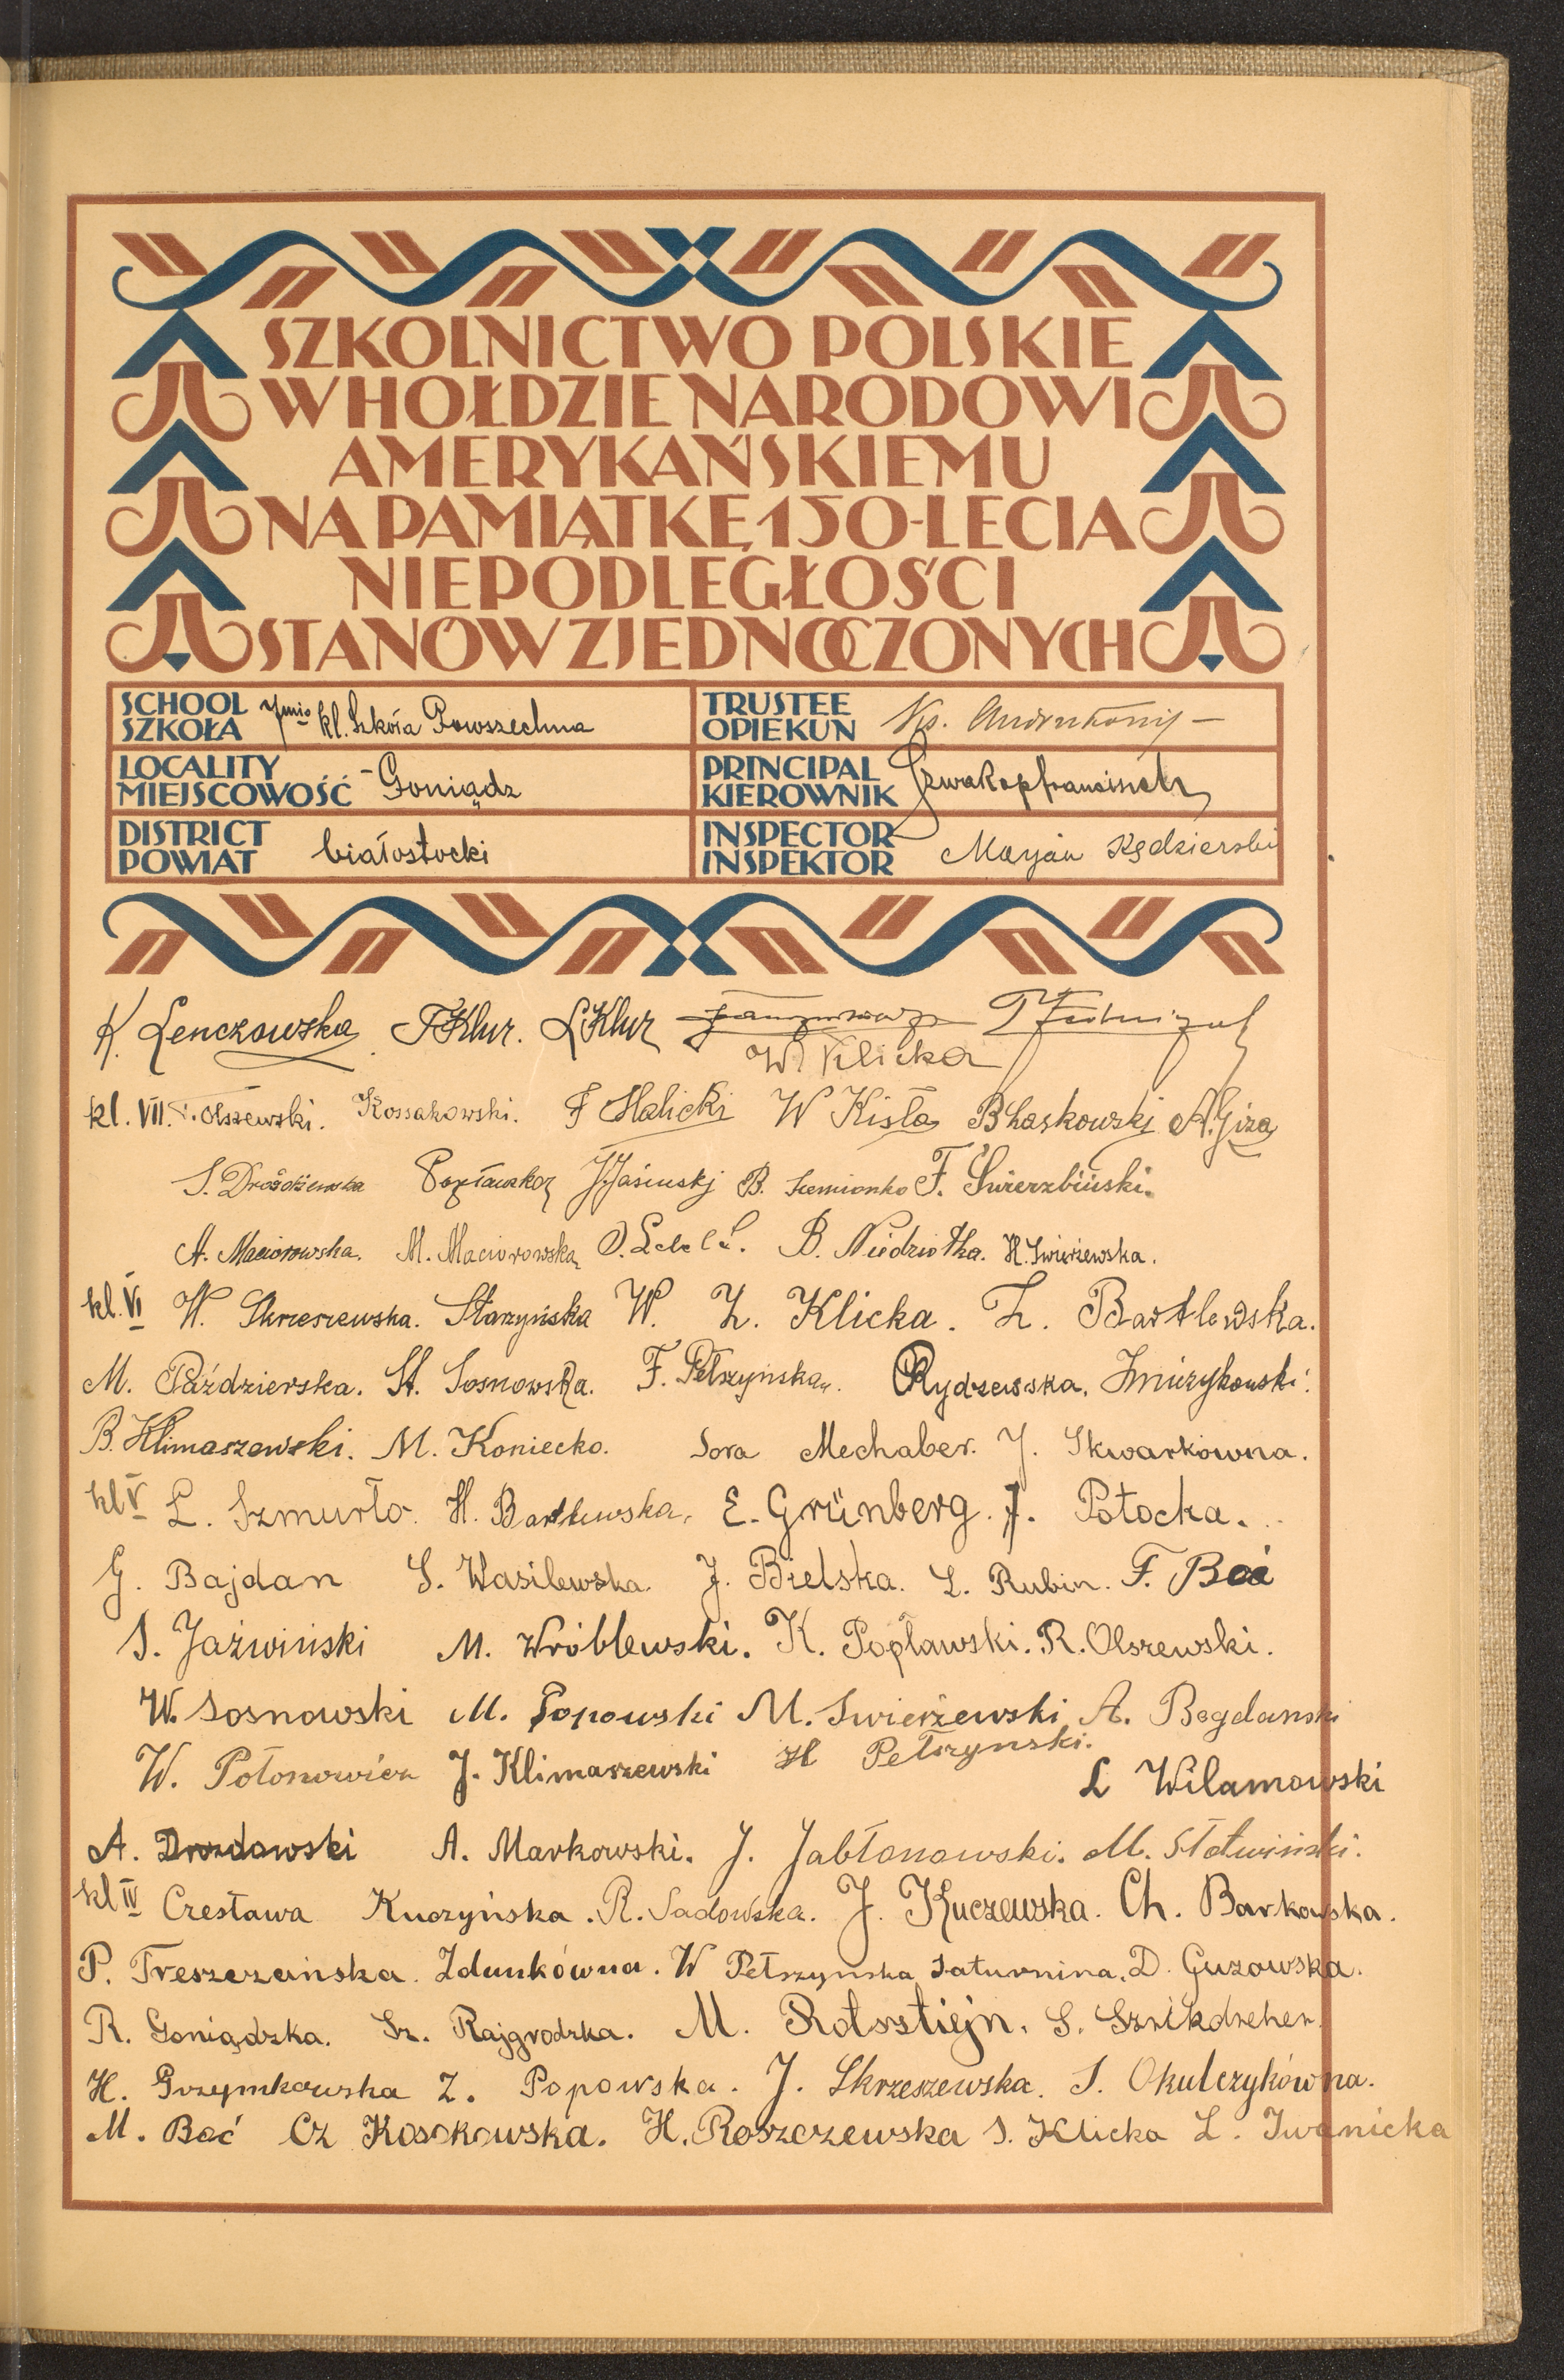 SZKOLNICTWO POLSKIE
W HOŁDZIE NARODOWI
AMERYKAŃSKIEMU
NA PAMIĄTKĘ 150-LECIA
NIEPODLEGŁOŚCI
STANÓW ZJEDNOCZONYCH
SCHOOL
SZKOŁA 7mio kl. Szkoła Powszechna
TRUSTEE
OPIEKUN
LOCALITY
MIEJSCOWOŚĆ - Goniądz
PRINCIPAL
KIEROWNIK
DISTRICT
POWIAT białostocki
INSPECTOR
INSPEKTOR Marjan Kędzierski
K. Lenczowska F Klur. L Klur
W. Klicka
kl. VII. Olszewski. Kossakowski. F Halicki W Kisła B Laskowski A. Giza
S. Drożdżewska Popławska J. Jasiński B. Siemionko F. Świerzbiński.
A. Maciorowska. M. Maciorowska B. Niedziółka. H. Świerżewska.
kl. VI W. Skrzeszewska. Starzyńska W. Z. Klicka. Z. Bartlewska.
M. Październska. St. Sosnowska. F. Pełszyńska. Rydzewska. Żmurzykowski.
B. Klimaszewski. M. Koniecko. Sora Mechaber. J. Skwarkówna.
kl V L. Szmurło. H. Bartlewska. E. Grünberg. J. Potocka.
G. Bajdan S. Wasilewska. J. Bielska. L. Rubin. F. Boć
S. Jaźwiński M. Wróblewski. K. Popławski. R. Olszewski.
W. Sosnowski M. Popowski M. Świerżewski A. Bogdanski
W. Połonowicz J. Klimaszewski H Pełszynski.
L Wilamowski
A. Drozdowski A. Markowski. J. Jabłonowski. M. Słotwiński.
kl IV Czesława Kuczyńska. R. Sadowska. J. Kuczewska. Ch. Barkowska.
P. Treszczańska. Zdunkówna. W Pełszynska Saturnina. D. Guzowska.
R. Goniądzka. Sz. Rajgrodzka. M. Rotsztiejn. S. Sznikdreher.
H. Grzymkowska Z. Popowska. J. Skrzeszewska. S. Okulczykówna.
M. Boć Cz Kosakowska. H. Roszczewska S. Klicka L. Iwanicka